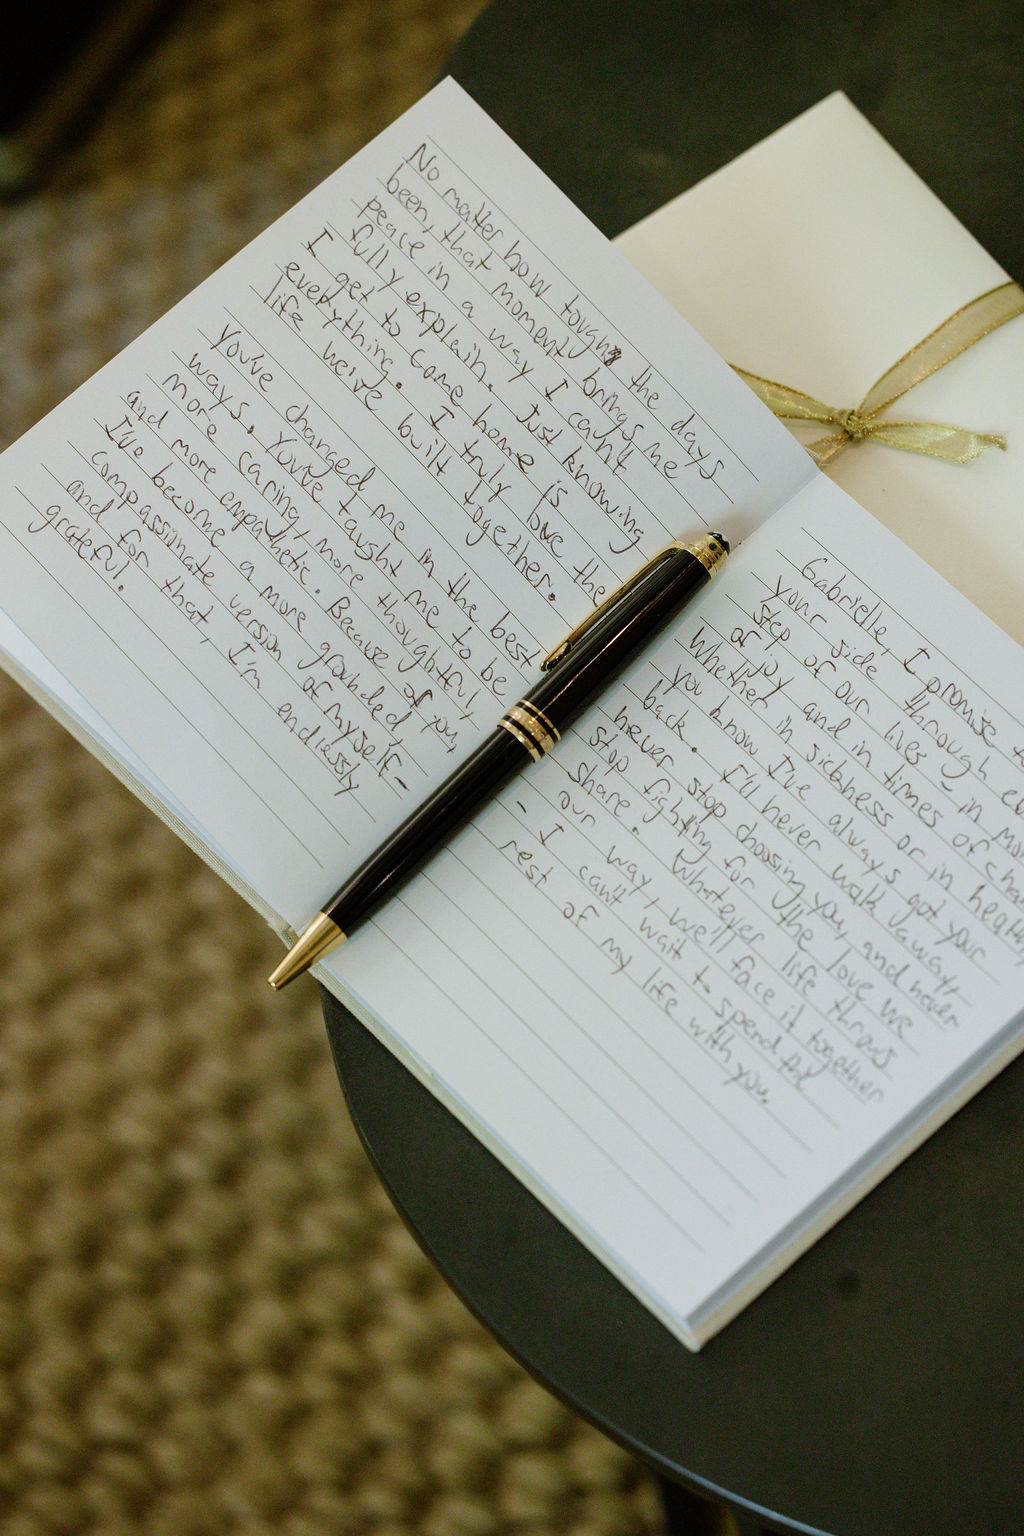 No matter how tough the days
been, that moment brings me
peace in a way I can't
fully explain. Just knowing
I get to come home is
everything. I truly love the
life we've built together.
You've changed me in the best
ways. You've taught me to be
more caring, more thoughtful,
and more empathetic. Because of you,
I've become a more grounded,
compassionate version of myself-
and for that, I'm endlessly
grateful.
Gabrielle, I promise
your side through
step of our lives - in
of joy and in times of
Whether in sickness or in health,
you know I've always got your
back. I'll never walk away,
never stop choosing you, and never
stop fighting for the love we
share. Whatever life throws
our way, we'll face it together
- I can't wait to spend the
rest of my life with you.